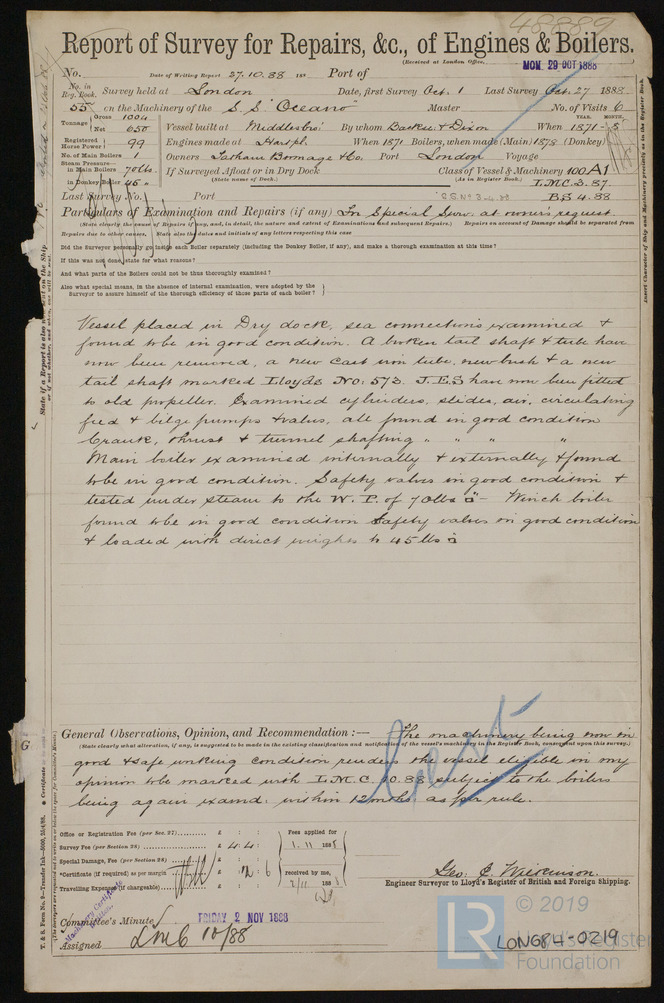 48889
Report of Survey for Repairs, &c., of Engines & Boilers.
(Received at London Office,
MON. 29 OCT 1888
No. Date of Writing Report 27.10.88 188 Port of
No. in Reg. Book. Survey held at London Date, first Survey Oct. 1 Last Survey Oct. 27 1888
55 on the Machinery of the S.S. "Oceano" Master No. of Visits 6
Tonnage Gross 1004 Net 650 Vessel built at Middlesbro' By whom Backhse & Dixon When 1871 - 5 YEAR. MONTH.
Registered Horse Power 99 Engines made at Hartpl. When 1871 Boilers, when made (Main) 1878 (Donkey)
No. of Main Boilers 1 Owners Port London Voyage
Steam Pressure— in Main Boilers 70 lbs. If Surveyed Afloat or in Dry Dock Class of Vessel & Machinery 100 A1
in Donkey Boiler 45 " (State name of Dock.) (As in Register Book.) L.M.C. 3. 87.
Last Survey No. Port B.S 4.88
Particulars of Examination and Repairs (if any) For Special Surv. at owners request.
(State clearly the cause of Repairs if any, and, in detail, the nature and extent of Examinations and subsequent Repairs.) Repairs on account of Damage should be separated from
Repairs due to other causes. State also the dates and initials of any letters respecting this case
Did the Surveyor personally go inside each Boiler separately (including the Donkey Boiler, if any), and make a thorough examination at this time?
If this was not done, state for what reasons?
And what parts of the Boilers could not be thus thoroughly examined?
Also what special means, in the absence of internal examination, were adopted by the
Surveyor to assure himself of the thorough efficiency of those parts of each boiler?
Vessel placed in Dry dock, sea connections examined &
found to be in good condition. A broken tail shaft & tube have
now been removed, a new cast iron tube, new bush & a new
tail shaft marked Lloyds No. 573. J.E.S have now been fitted
to old propeller. Examined cylinders, slides, air, circulating
feed & bilge pumps & valves, all found in good condition
Crank, thrust & tunnel shafting " " " "
Main boiler examined internally & externally & found
to be in good condition. Safety valves in good condition &
tested under steam to the W. P. of 70 lbs □" - Winch boiler
found to be in good condition Safety valves in good condition
& loaded with direct weights to 45 lbs □"
General Observations, Opinion, and Recommendation :— The machinery being now in
(State clearly what alteration, if any, is suggested to be made in the existing classification and notification of the vessel's machinery in the Register Book, consequent upon this survey.)
good & safe working condition renders the vessel eligible in my
opinion to be marked with L.M.C. 10.88 subject to the boilers
being again examd. within 12 mths. as per rule.
Office or Registration Fee (per Sec. 27) £ : : Fees applied for
Survey Fee (per Section 28) £ 4 : 4 : 1. 11 1888
Special Damage, Fee (per Section 28) £ : :
*Certificate (if required) as per margin £ : 2 : 6 received by me,
Travelling Expenses (if chargeable) £ : : 2/11 188
Geo. J. Wilkinson.
Engineer Surveyor to Lloyd's Register of British and Foreign Shipping.
Committee's Minute FRIDAY 2 NOV 1888
Assigned LMC 10/88
Machinery Certificate
LR
© 2019
Lloyd's Register
Foundation
LON684-0219
T. & B. Form No. 9—Transfer Ink—5000, 25/4/88.
G